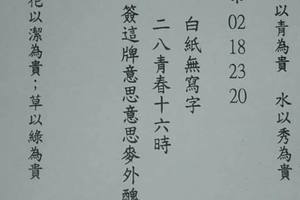 以青為貴 水以秀為貴
02 18 23 20
白紙無寫字
二八青春十六時
簽這牌意思意思麥外醜
花以潔為貴；草以綠為貴